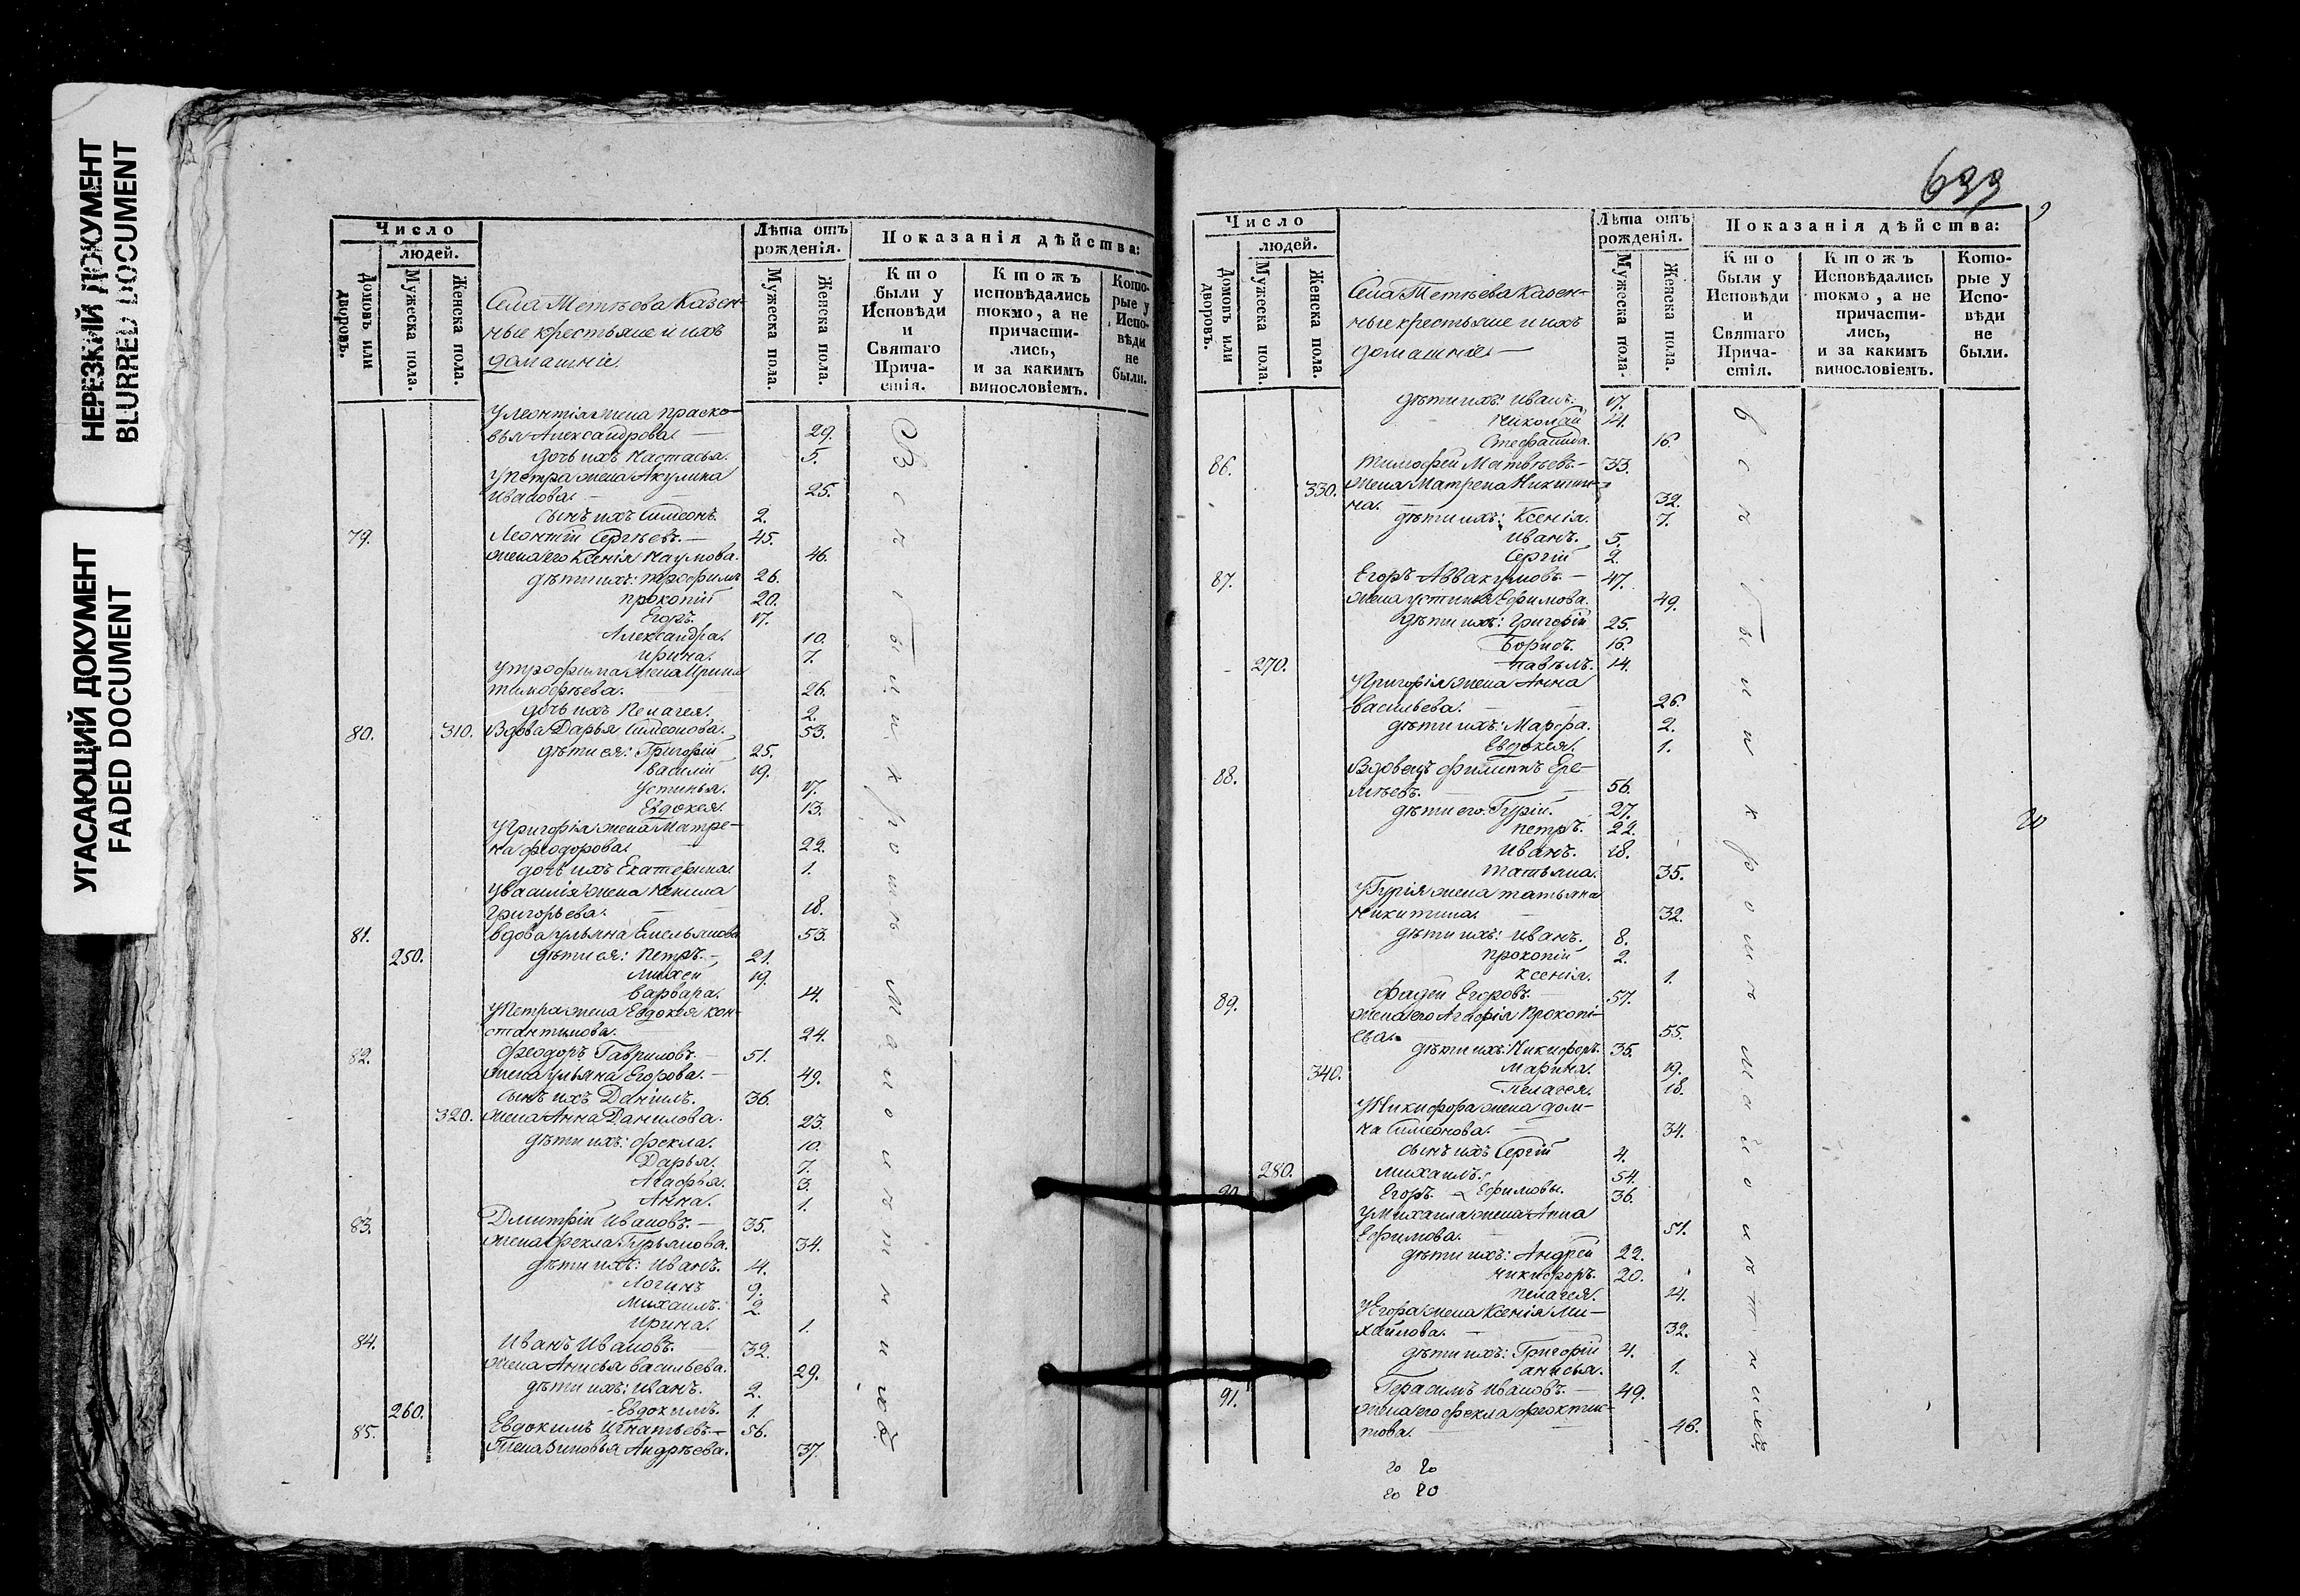 НЕРЕЗКИЙ ДОКУМЕНТ
BLURRED DOCUMENT
УГАСАЮЩИЙ ДОКУМЕНТ
FADED DOCUMENT
Число
людей.
Домовъ или дворовъ.
Мужеска пола.
Женска пола.
Села Тетѣева Казен-
ные крестьяне и ихъ
домашніе.
Лѣта отъ
рожденія.
Мужеска пола.
Женска пола.
Показанія дѣйства:
Кто
были у
Исповѣди
и
Святаго
Прича-
стія.
Ктожъ
исповѣдались
токмо, а не
причасти-
лись,
и за какимъ
винословіемъ.
Кото-
рые у
Испо-
вѣди
не
были.
У Леонтія жена Праско-
вья Александрова. 29.
дочь ихъ Настасья. 5.
У Петра жена Акулина
Иванова. 25.
сынъ ихъ Симеонъ. 2.
79. Леонтій Сергѣевъ. 45.
жена его Ксенія Наумова. 46.
дѣти ихъ: Трофимъ 26.
Прокопій 20.
Егоръ. 17.
Александра. 10.
Ирина. 7.
У Трофима жена Ирина
Тимофѣева. 26.
дочь ихъ Пелагея. 2.
80. 310. Вдова Дарья Симеонова. 53.
дѣти ея: Григорій 25.
Василій 19.
Устинья. 17.
Евдокея. 13.
У Григорія жена Матре-
на Феодорова. 22.
дочь ихъ Екатерина. 1.
У Василія жена
Григорьева. 18.
81. Вдова Ульяна Емельянова 53.
250. дѣти ея: Петръ. 21.
Михей 19.
Варвара. 14.
У Петра жена Евдокея Кон-
стантинова. 24.
82. Феодоръ Гавриловъ. 51.
жена Ульяна Егорова. 49.
сынъ ихъ Даніилъ. 36.
320. жена Анна Данилова. 23.
дѣти ихъ: Фекла. 10.
Дарья. 7.
Агафья. 3.
Анна. 1.
83. Дмитрій Ивановъ. 35.
жена Фекла Гурьянова. 34.
дѣти ихъ: Иванъ. 14.
Логинъ 9.
Михаилъ. 2.
Ирина. 1.
84. Иванъ Ивановъ. 32.
жена Анисья Васильева. 29.
дѣти ихъ: Иванъ. 2.
260. Евдокимъ. 1.
85. Евдокимъ Игнатьевъ 56.
Жена Зиновья Андрѣева. 37.
633
Число
людей.
Домовъ или дворовъ.
Мужеска пола.
Женска пола.
Села Тетѣева Казен-
ные крестьяне и ихъ
домашніе
Лѣта отъ
рожденія.
Мужеска пола.
Женска пола.
Показанія дѣйства:
Кто
были у
Исповѣди
и
Святаго
Прича-
стія.
Ктожъ
Исповѣдались
токмо, а не
причасти-
лись,
и за какимъ
винословіемъ.
Кото-
рые у
Испо-
вѣди
не
были.
дѣти ихъ: Иванъ. 17.
Николай 14.
Стефанида. 16.
86. Тимофей Матвѣевъ 33.
330. жена Матрена Никити-
на. 32.
дѣти ихъ: Ксенія. 7.
Иванъ. 5.
Сергій 2.
87. Егоръ Аввакумовъ. 47.
жена Устинья Ефимова. 49.
дѣти ихъ: Григорій 25.
Борисъ. 16.
270. Павелъ. 14.
У Григорія жена Анна
Васильева. 26.
дѣти ихъ: Марфа. 2.
Евдокея. 1.
88. Вдовецъ Филиппъ Ере-
мѣевъ. 56.
дѣти его: Гурій. 27.
Петръ. 22.
Иванъ. 18.
Татьяна. 35.
У Гурія жена Татьяна
Никитина. 32.
дѣти ихъ: Иванъ. 8.
Прокопій 2.
Ксенія. 1.
89. Фадей Егоровъ. 57.
жена его Агафія Прокопі-
ева. 55.
дѣти ихъ: Никифоръ. 35.
340. Марина. 19.
Пелагея. 18.
У Никифора жена Дом-
на Симеонова. 34.
сынъ ихъ Сергій 4.
280. Михаилъ. 54.
90. Егоръ. Ефимовы. 36.
У Михаила жена Анна
Ефимова. 51.
дѣти ихъ: Андрей 22.
Никифоръ. 20.
Пелагея. 14.
У Егора жена Ксенія Ми-
хайлова. 32.
дѣти ихъ: Григорій 4.
Анисья. 1.
91. Герасимъ Ивановъ. 49.
жена его Фекла Феоктис-
това. 46.
20 20
20 20